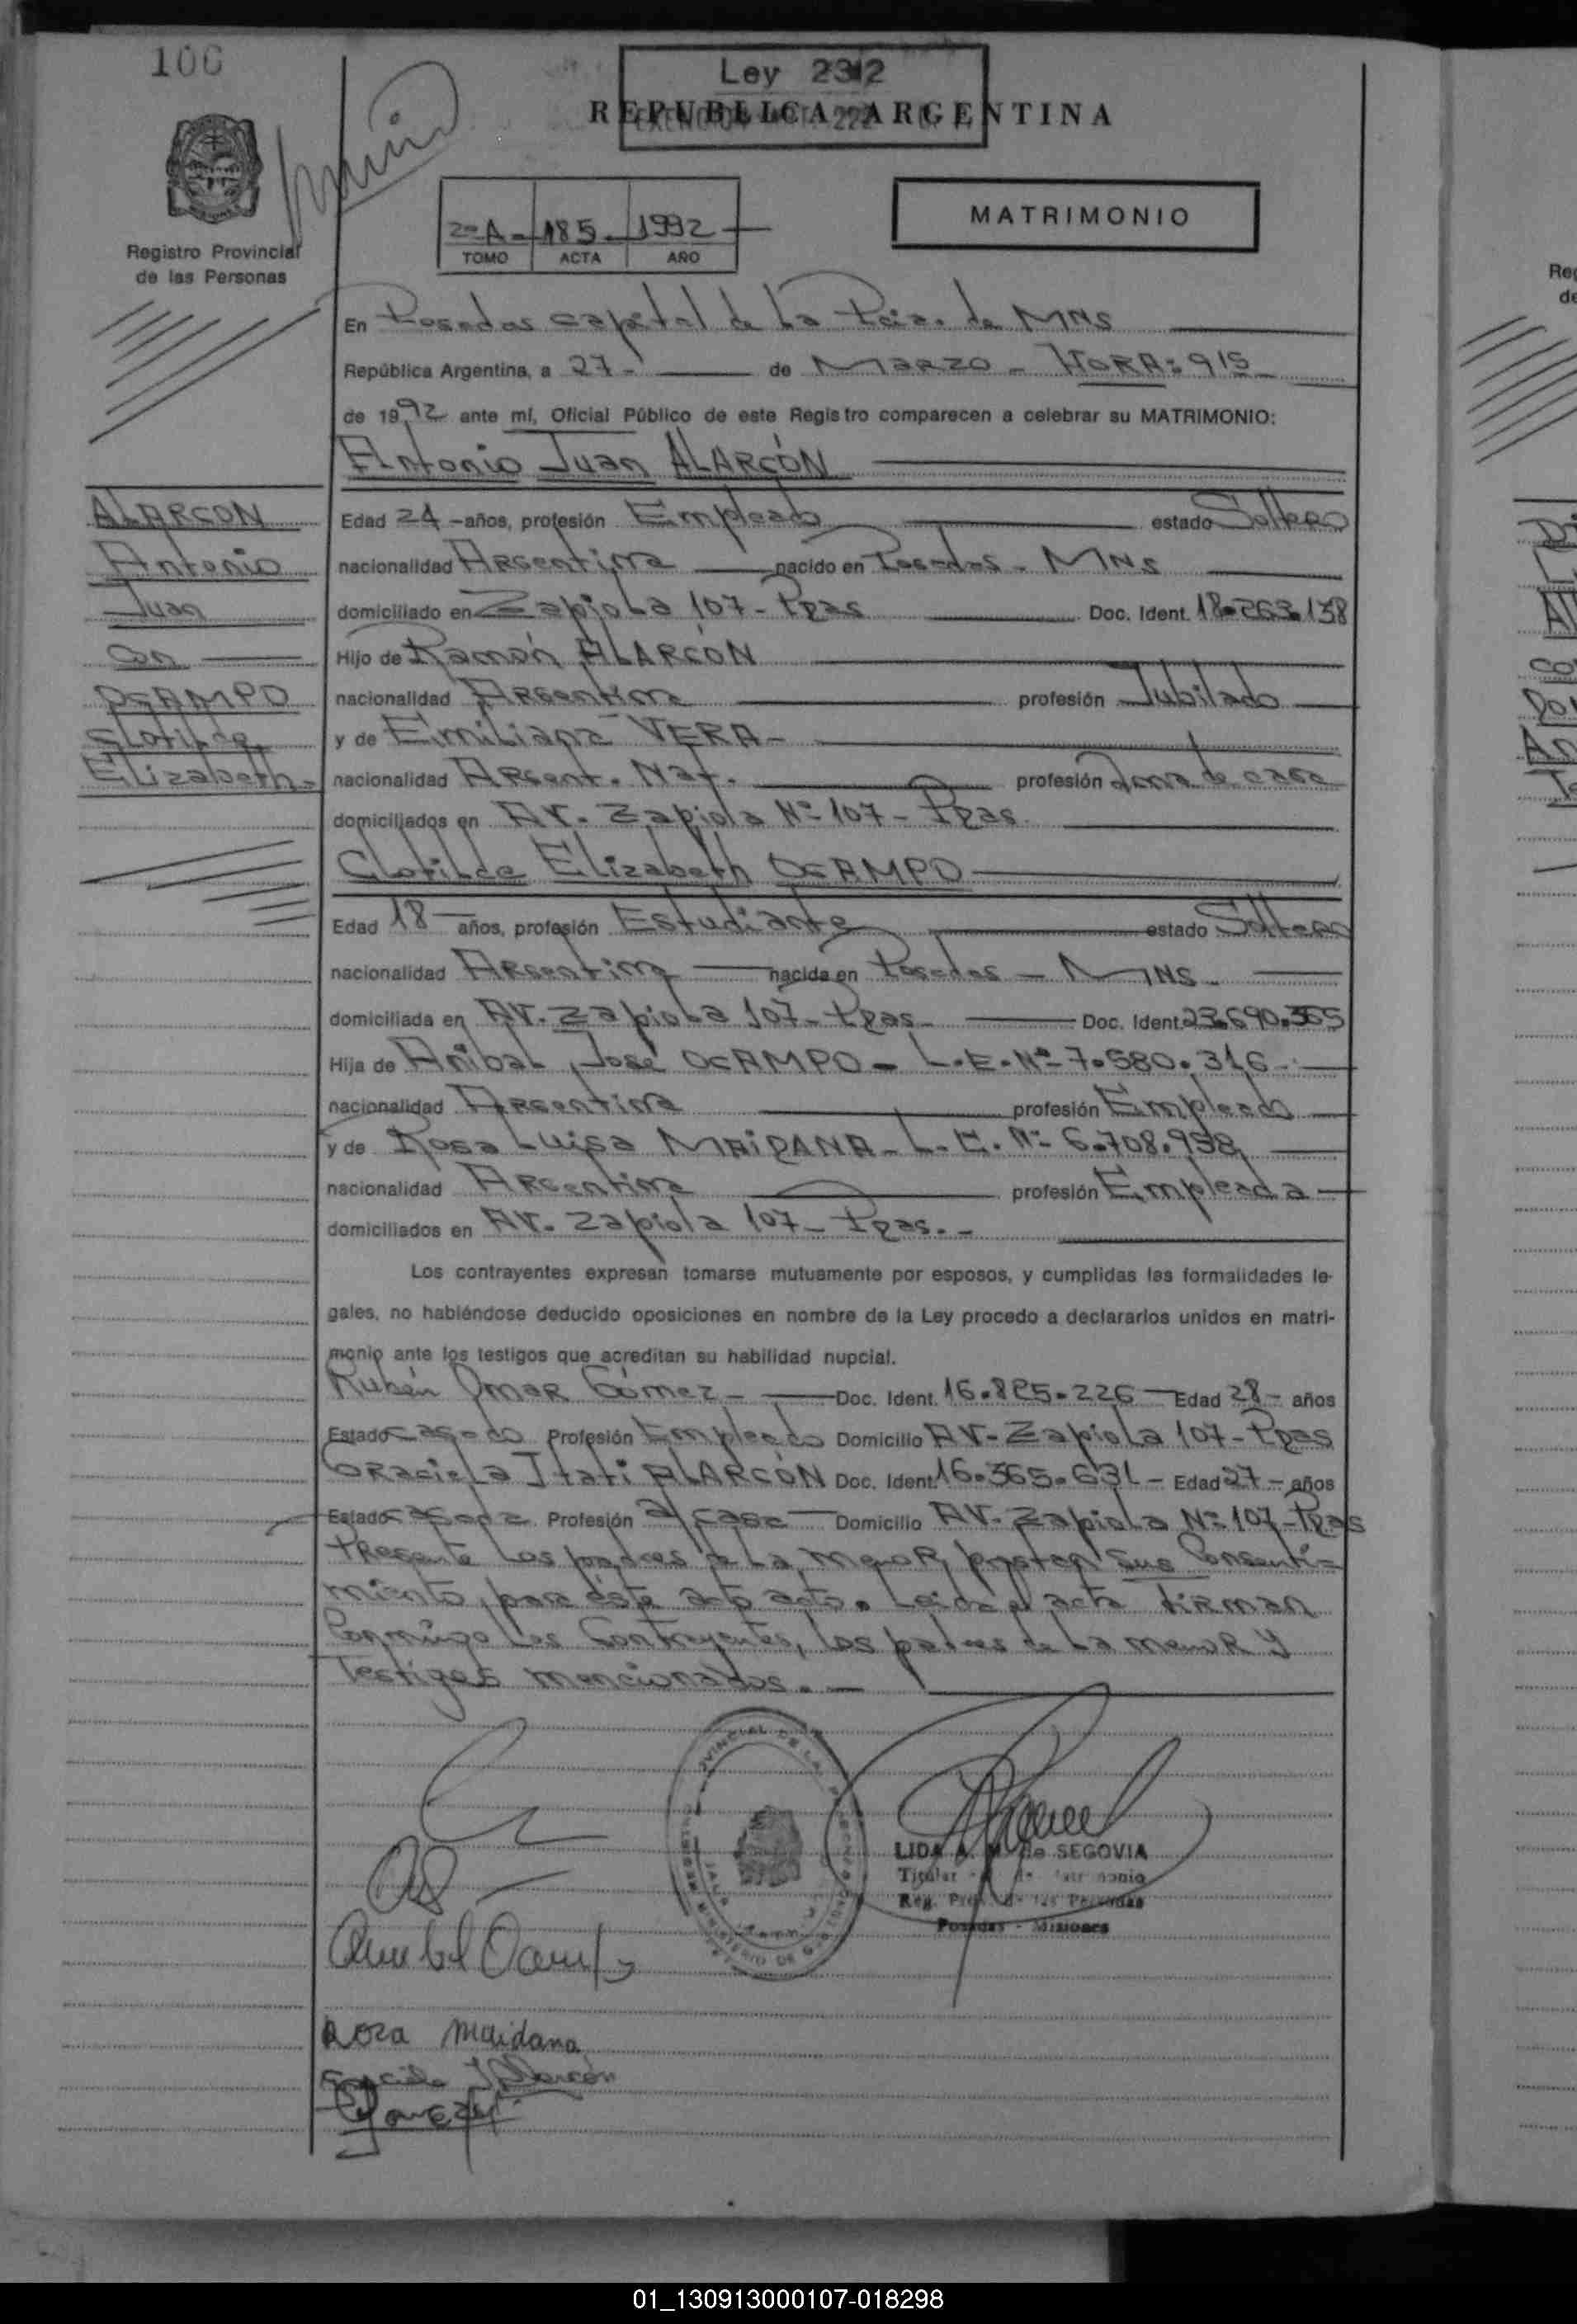 106
Ley 2312
REPUBLICA ARGENTINA
Registro Provincial
de las Personas
MATRIMONIO
2º A - 185 - 1992
TOMO ACTA AÑO
En Posadas capital de La Pcia. de MNS
República Argentina, a 27 - de Marzo - HORA: 915
de 1992 ante mí, Oficial Público de este Registro comparecen a celebrar su MATRIMONIO:
Antonio Juan ALARCÓN
ALARCON
Antonio
Juan
con
OCAMPO
Clotilde
Elizabeth -
Edad 24 - años, profesión Empleado estado Soltero
nacionalidad Argentina nacido en Posadas - MNS
domiciliado en Zapiola 107 - Pdas Doc. Ident. 18.263.138
Hijo de Ramón ALARCÓN
nacionalidad Argentina profesión Jubilado
y de Emiliana VERA -
nacionalidad Argent. Nat. profesión Ama de casa
domiciliados en AV. Zapiola Nº 107 - Pdas
Clotilde Elizabeth OCAMPO
Edad 18 años, profesión Estudiante estado Soltera
nacionalidad Argentina nacida en Posadas - MNS -
domiciliada en AV. Zapiola 107 - Pdas - Doc. Ident. 23.690.365
Hija de Anibal José OCAMPO - L.E. Nº 7.580.316 -
nacionalidad Argentina profesión Empleado
y de Rosa Luisa MAIDANA - L.C. Nº 6.708.958
nacionalidad Argentina profesión Empleada
domiciliados en AV. Zapiola 107 - Pdas. -
Los contrayentes expresan tomarse mutuamente por esposos, y cumplidas las formalidades le-
gales, no habiéndose deducido oposiciones en nombre de la Ley procedo a declararlos unidos en matri-
monio ante los testigos que acreditan su habilidad nupcial.
Rubén Omar Gómez - Doc. Ident. 16.825.226 - Edad 28 - años
Estado casado Profesión Empleado Domicilio AV. Zapiola 107 - Pdas
Graciela Itatí ALARCÓN Doc. Ident. 16.365.631 - Edad 27 - años
Estado casada Profesión a/casa Domicilio AV. Zapiola Nº 107 - Pdas
Presente los padres de La menor, prestan sus Consenti=
miento, para éste acto acto. Leida el acta firman
Conmigo los Contrayentes, los padres de La menor y
Testigos mencionados. -
LIDA A. M. de SEGOVIA
Posadas - Misiones
Anibal Ocampo
Rosa Maidana
Graciela I Alarcón
01_130913000107-018298